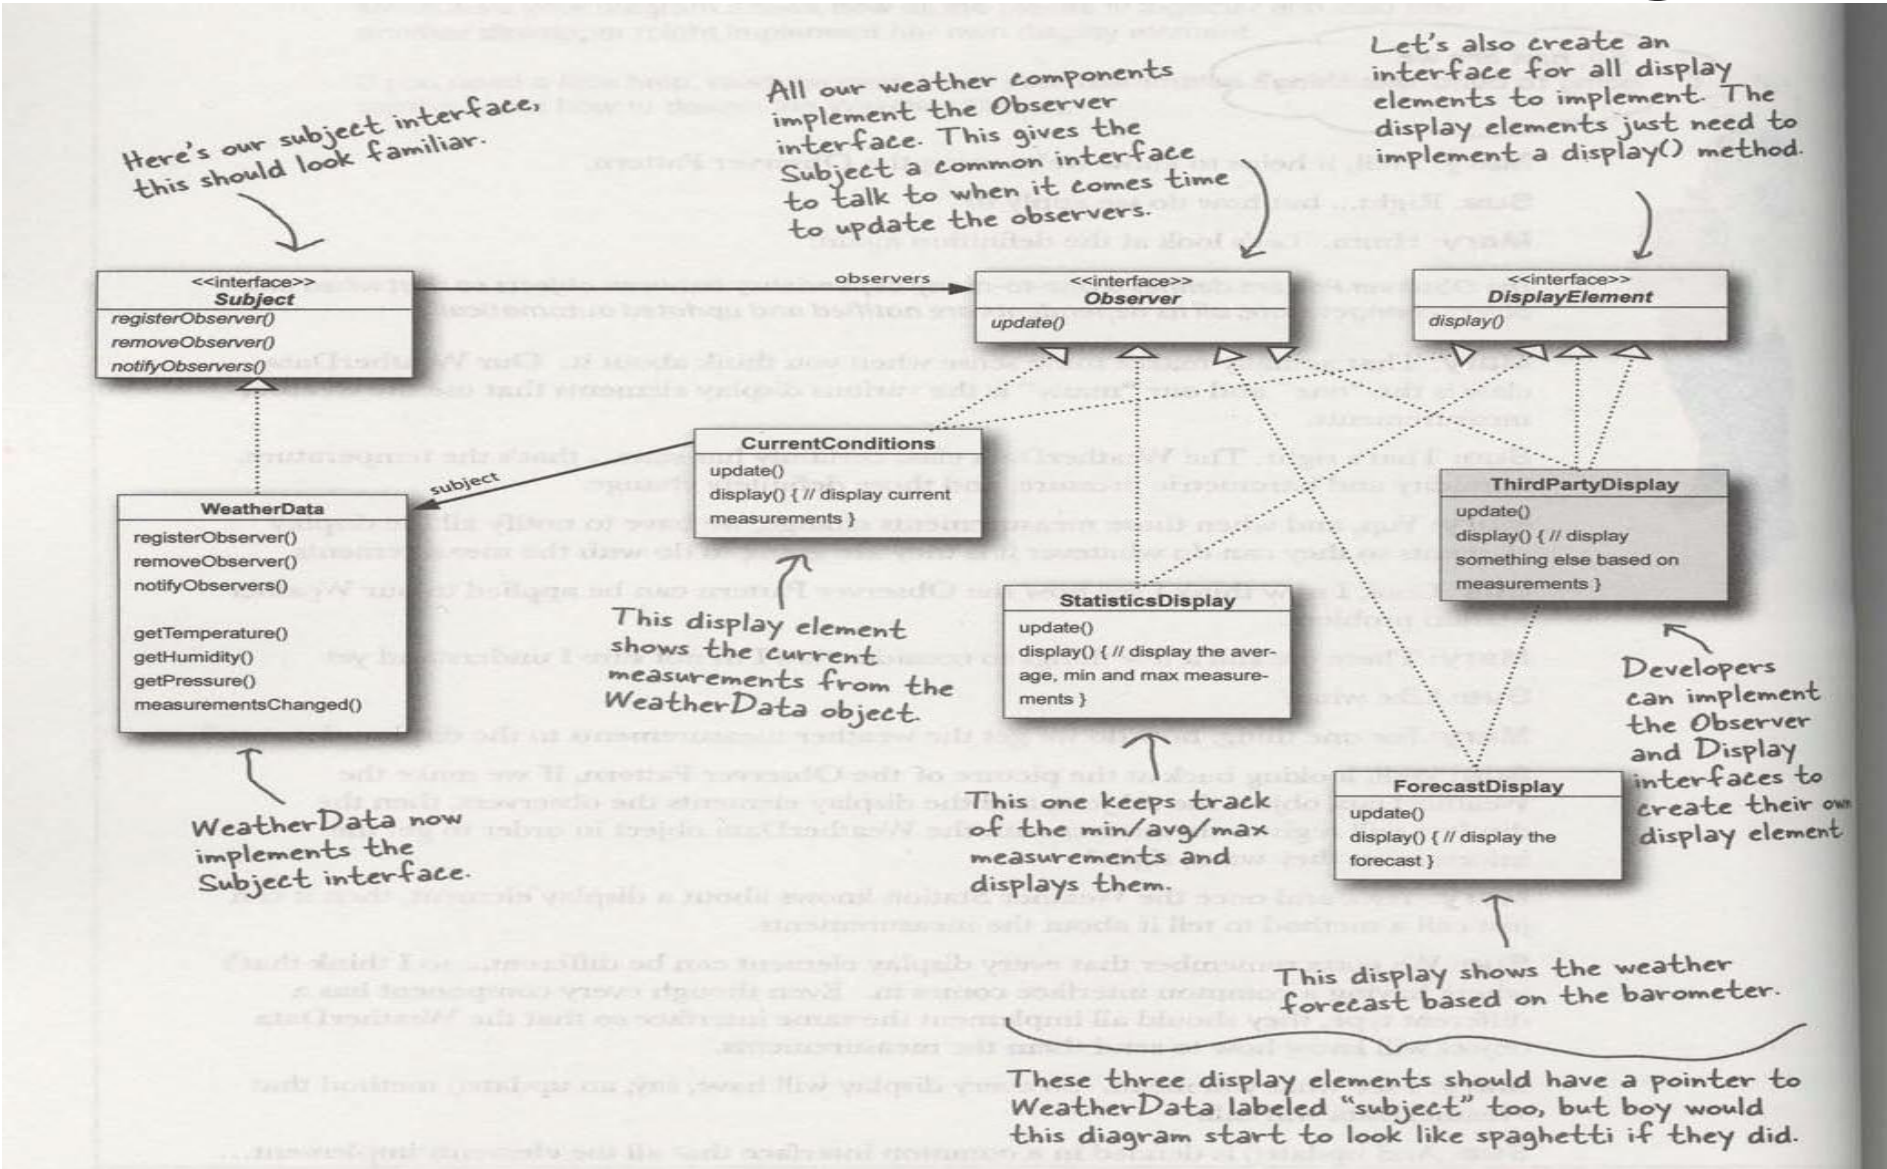 Here's our subject interface,
this should look familiar.
All our weather components
implement the Observer
interface. This gives the
Subject a common interface
to talk to when it comes time
to update the observers.
Let's also create an
interface for all display
elements to implement. The
display elements just need to
implement a display() method.
<<interface>>
Subject
registerObserver()
removeObserver()
notifyObservers()
observers
<<interface>>
Observer
update()
<<interface>>
DisplayElement
display()
WeatherData
registerObserver()
removeObserver()
notifyObservers()
getTemperature()
getHumidity()
getPressure()
measurementsChanged()
subject
CurrentConditions
update()
display() { // display current
measurements }
StatisticsDisplay
update()
display() { // display the aver-
age, min and max measure-
ments }
ThirdPartyDisplay
update()
display() { // display
something else based on
measurements }
ForecastDisplay
update()
display() { // display the
forecast }
This display element
shows the current
measurements from the
WeatherData object.
Developers
can implement
the Observer
and Display
interfaces to
create their own
display element
WeatherData now
implements the
Subject interface.
This one keeps track
of the min/avg/max
measurements and
displays them.
This display shows the weather
forecast based on the barometer.
These three display elements should have a pointer to
WeatherData labeled "subject" too, but boy would
this diagram start to look like spaghetti if they did.